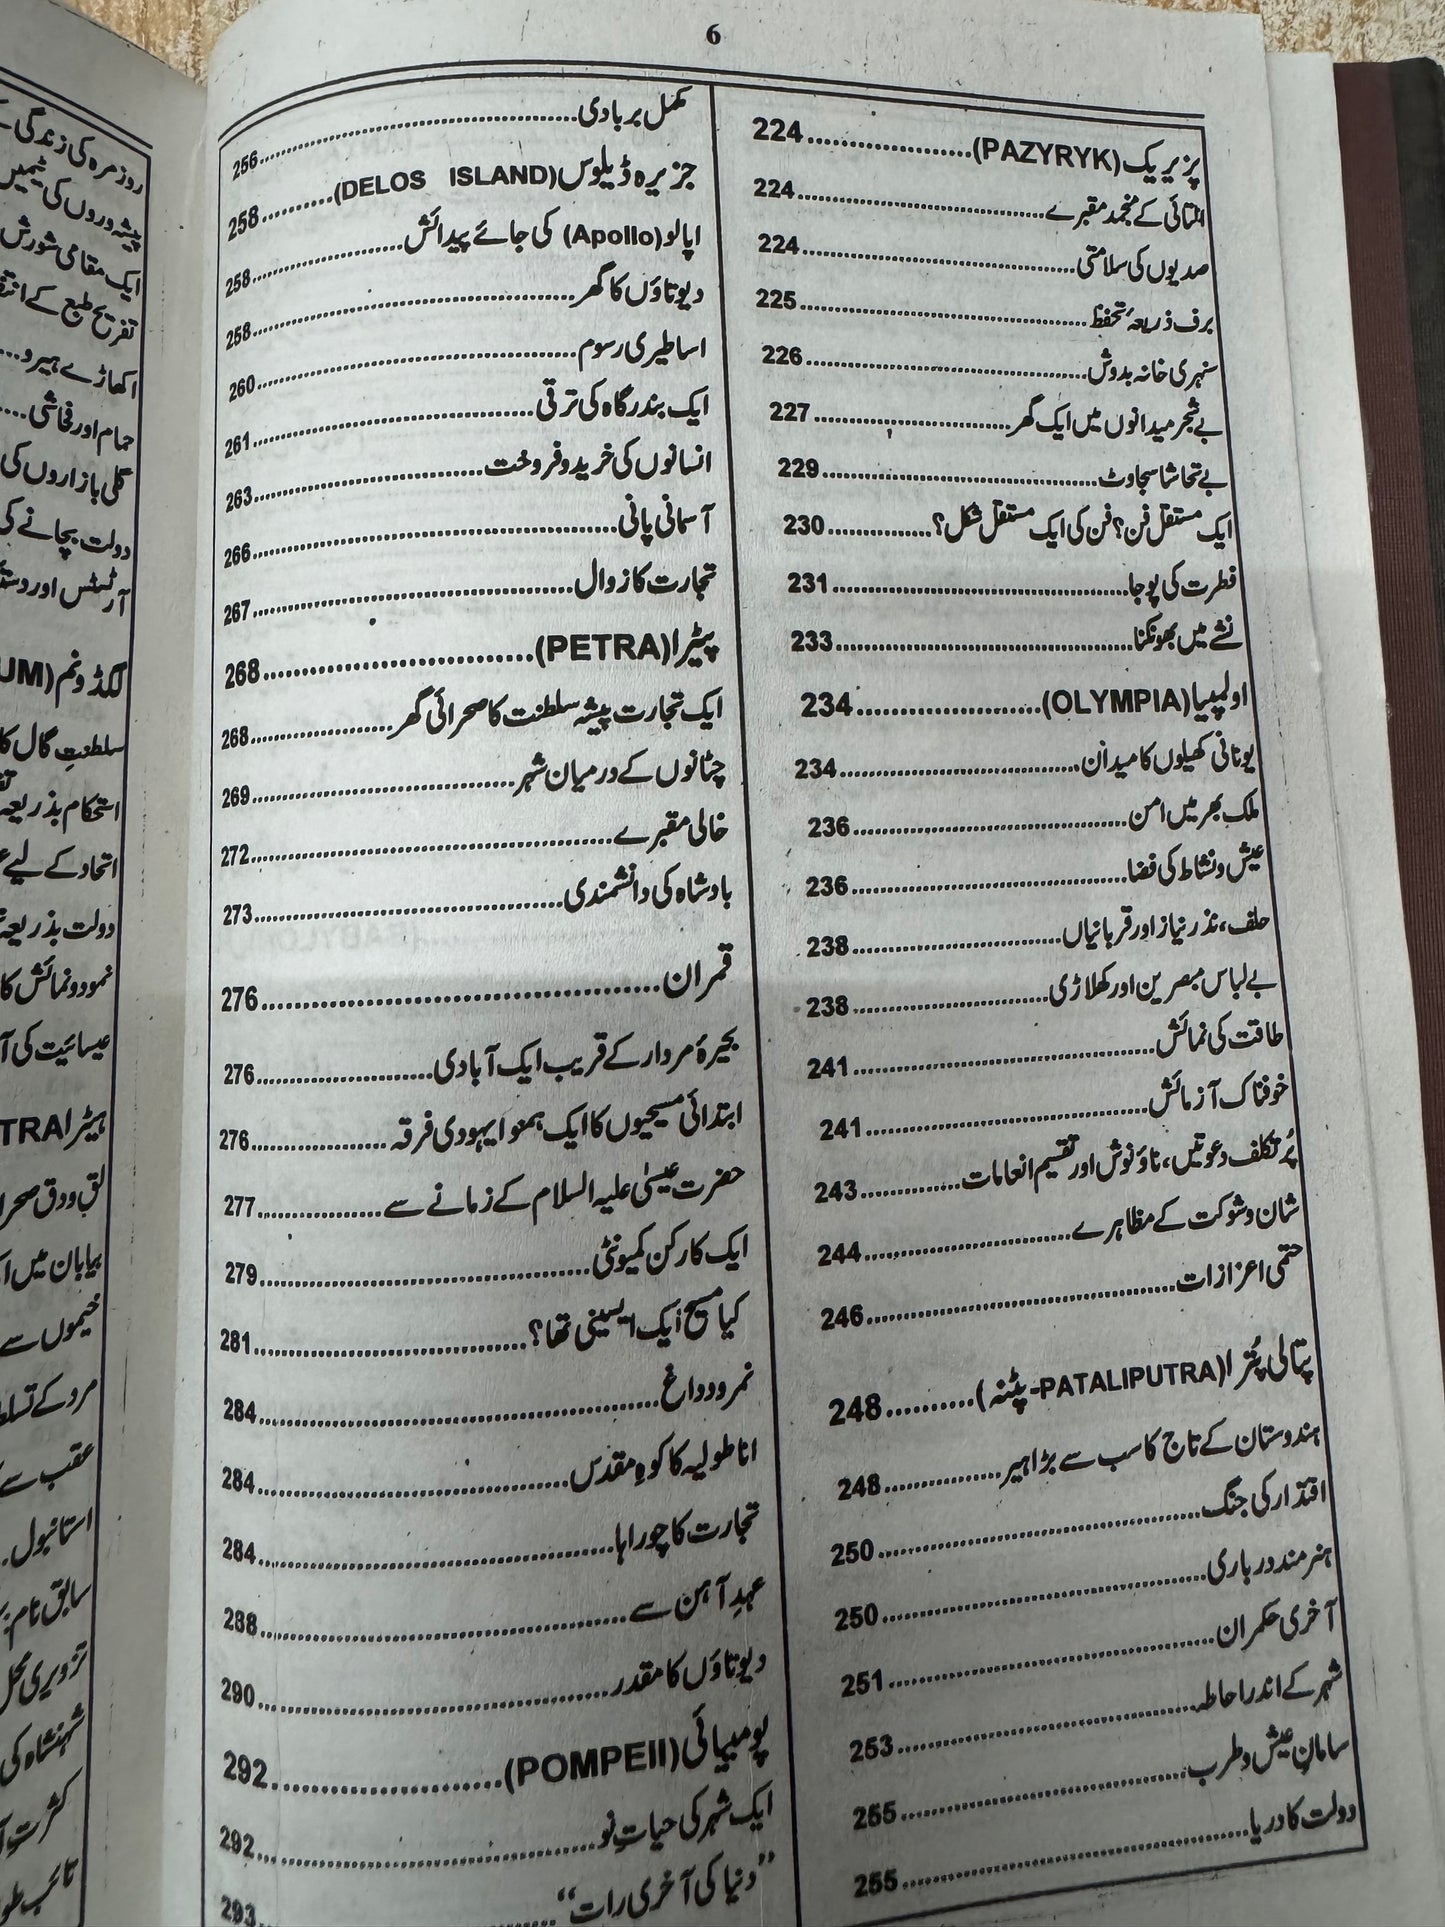 6
پزیریک (PAZYRYK)....................224
التائی کے منجمد مقبرے....................224
صدیوں کی سلامتی....................224
برف ذریعہ تحفظ....................225
سنہری خانہ بدوش....................226
بے شجر میدانوں میں ایک گھر....................227
بے تحاشا سجاوٹ....................229
ایک مستقل فن؟ فن کی ایک مستقل شکل؟............230
فطرت کی پوجا....................231
نشے میں بھونکنا....................233
اولمپیا (OLYMPIA)....................234
یونانی کھیلوں کا میدان....................234
ملک بھر میں امن....................236
عیش و نشاط کی فضا....................236
حلف، نذر نیاز اور قربانیاں....................238
بے لباس مبصرین اور کھلاڑی....................238
طاقت کی نمائش....................241
خوفناک آزمائش....................241
پُر تکلف دعوتیں، ناؤ نوش اور تقسیم انعامات............243
شان و شوکت کے مظاہرے....................244
حتمی اعزازات....................246
پتالی پُترا (PATALIPUTRA-پٹنہ)..........248
ہندوستان کے تاج کا سب سے بڑا ہیر..............248
اقتدار کی جنگ....................250
ہنر مند درباری....................250
آخری حکمران....................251
شہر کے اندر احاطہ....................253
سامانِ عیش و طرب....................255
دولت کا دریا....................255
مکمل بربادی....................256
جزیرہ ڈیلوس (DELOS ISLAND)..........258
اپالو (Apollo) کی جائے پیدائش....................258
دیوتاؤں کا گھر....................258
اساطیری رسوم....................260
ایک بندرگاہ کی ترقی....................261
انسانوں کی خرید و فروخت....................263
آسمانی پانی....................266
تجارت کا زوال....................267
پیٹرا (PETRA)....................268
ایک تجارت پیشہ سلطنت کا صحرائی گھر....................268
چٹانوں کے درمیان شہر....................269
خالی مقبرے....................272
بادشاہ کی دانشمندی....................273
قمران....................276
بحیرۂ مردار کے قریب ایک آبادی....................276
ابتدائی مسیحیوں کا ایک ہمنوا یہودی فرقہ................276
حضرت عیسیٰ علیہ السلام کے زمانے سے................277
ایک کارکن کمیونٹی....................279
کیا مسیح ایک ایسینی تھا؟....................281
نمرود داغ....................284
اناطولیہ کا کوہِ مقدس....................284
تجارت کا چوراہا....................284
عہدِ آہن سے....................288
دیوتاؤں کا مقدر....................290
پومپیائی (POMPEII)....................292
ایک شہر کی حیاتِ نو....................292
"دنیا کی آخری رات"....................293
روزمرہ کی زندگی
پیشہ وروں کی ٹیمیں
ایک مقامی شورش
تفریح طبع کے
اکھاڑے ہیرو...
حمام اور فحاشی....
گلی بازاروں کی
دولت بچانے کی
آرٹسٹس اور
لگڈونم (UM
سلطنتِ گال کا
استحکام بذریعہ
اتحاد کے لیے
دولت بذریعہ
نمود و نمائش کا
عیسائیت کی
ہیٹرا TRA
لق و دق صحرا
بیابان میں
خیموں سے
مرد کے تسلط
عقب سے
استانبول..
سابق نام
تزویری محل
شہنشاہ کی
کثرتِ